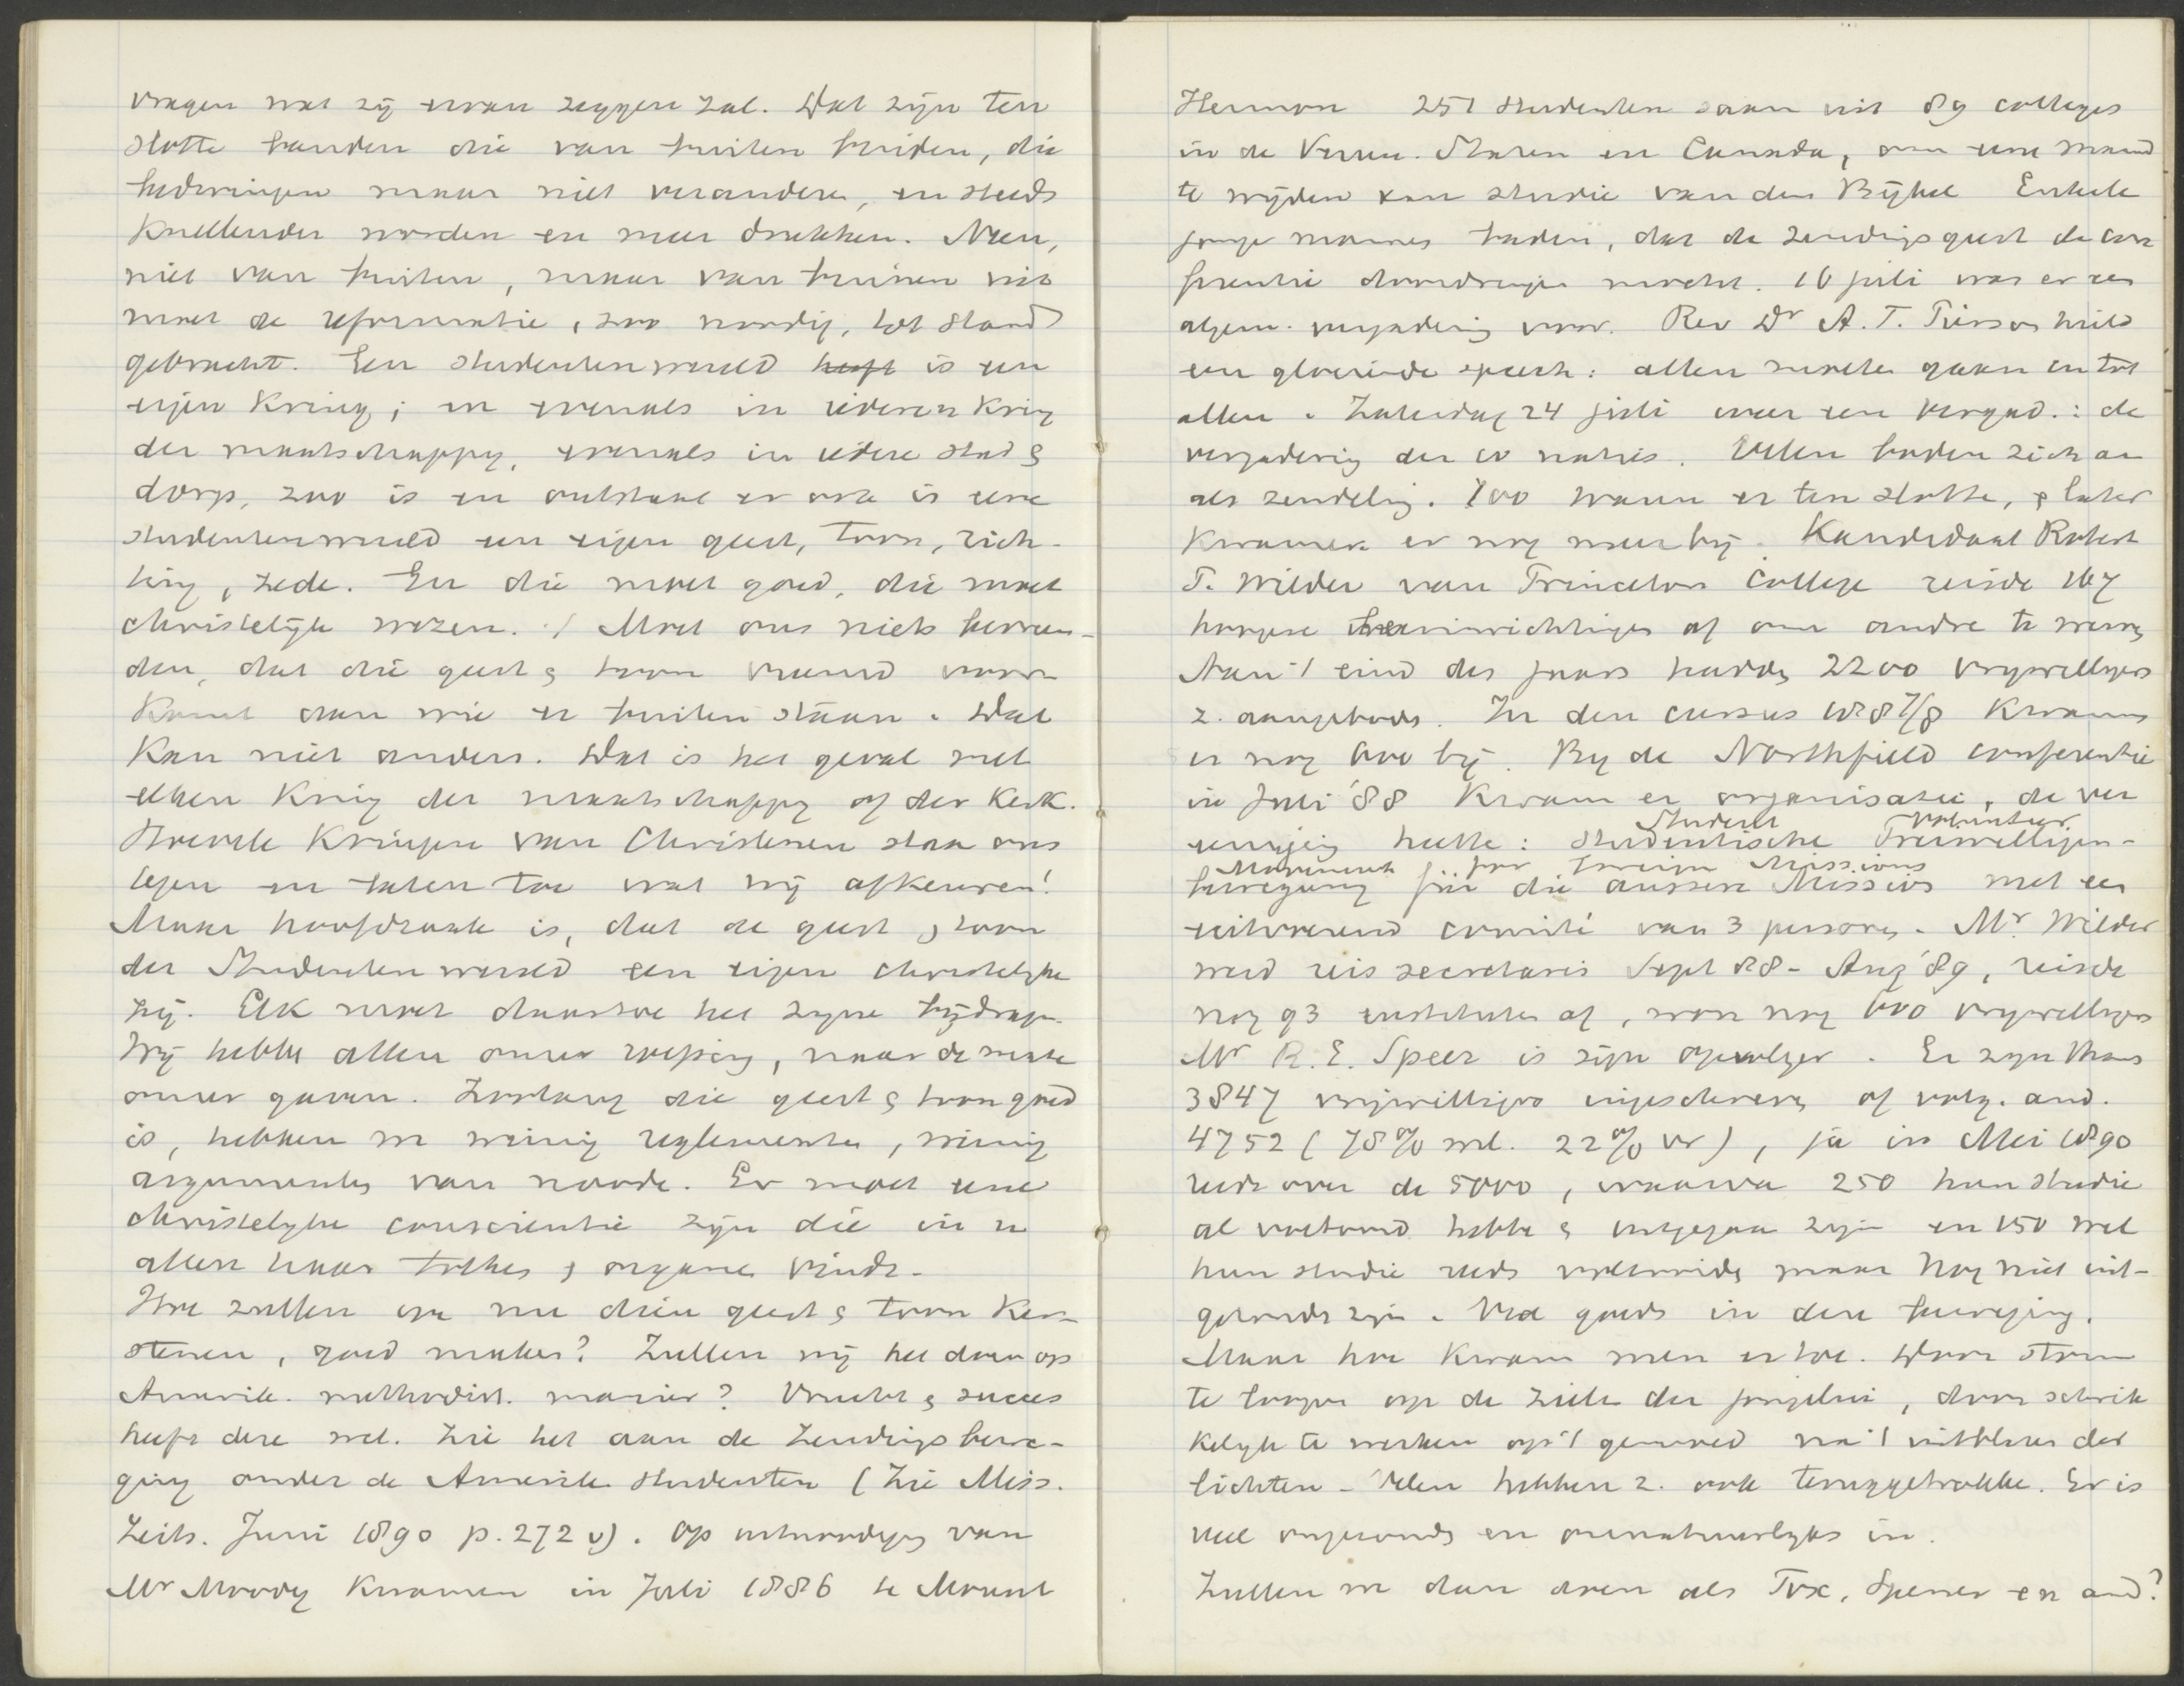 vragen wat zij ervan zeggen zal. Dat zijn ten
slotte banden die van buiten binden, die
bedwingen maar niet veranderen, en steeds
knellender worden en meer drukken. Neen,
niet van buiten, maar van binnen uit
moet de reformatie, zoo noodig, tot stand
gebracht. Een studentenwereld heeft is een
eigen kring; en evenals in iederen kring
der maatschappy, evenals in iedere stad &
dorp, zoo is en ontstaat er ook in eene
studentenwereld een eigen geest, toon, rich-
ting, zede. En die moet goed, die moet
christelijk wezen. Moet ons niets bevreem-
den, dat die geest & toon vreemd voor
komt aan wie er buiten staan. Dat
kan niet anders. Dat is het geval met
elken kring der maatschappy of der Kerk.
Hoevele kringen van Christenen staan ons
tegen en laten toe wat wij afkeuren!
Maar hoofdzaak is, dat de geest & toon
der Studentenwereld een eigen christelyke
zij. Elk moet daartoe het zyne bijdragen.
Wij hebben allen onze roeping, naar de mate
onzer gaven. Zoolang die geest & toon goed
is, hebben we weinig reglementen, weinig
argumenten van noode. Er moet eene
christelyke conscientie zijn die in u
allen haar tolken & organen vindt.
Hoe zullen we nu dien geest & toon ker-
stenen, goed maken? Zullen wij het doen op
Amerik. methodist. manier? Vrucht & succes
heeft deze wel. Zie het aan de Zendingsbewe-
ging onder de Amerik. studenten (Zie Miss.
Zeits. Juni 1890 p. 272 v). Op uitnoodiging van
Mr Moody kwamen in Juli 1886 te Mount
Hermon 251 studenten saam uit 89 colleges
in de Vereen. Staten en Canada, om eene maand
te wijden aan studie van den Bijbel Enkele
jonge mannen baden, dat de zendingsgeest de con
ferentie doordringen mocht. 16 juli was er een
algem. vergadering voor. Rev Dr A. T. Pierson hield
een gloeiende speech: allen moeten gaan en tot
allen. Zaterdag 24 juli weer een vergad.: de
vergadering der 10 naties. Velen boden zich aan
als zendeling. 100 waren er ten slotte, & later
kwamen er nog meer bij. Kandidaat Robert
P. Wilder van Princeton College reisde 167
hoogere inrichtingen af om andre te werven
Aan 't eind des jaars hadden 2200 vrywilligers
z. aangeboden. In den cursus 1887/8 kwamen
er nog 600 bij. By de Northfield conferentie
in Juli '88 kwam er organisatie, de ver
Student Volunteer
eeniging heette: studentische Freiwilligen-
Movement for Foreign Missions
bewegung für die äussere Mission met een
uitvoerend comité van 3 personen. Mr. Wilder
werd reissecretaris Sept 88 - Aug '89, reisde
nog 93 instituten af, won nog 600 vrywilligers
Mr R. E. Speer is zijn opvolger. Er zyn thans
3847 vrijwilligers ingeschreven of volg. and.
4752 (78% ml. 22% vr), ja in Mei 1890
reeds over de 5000, waarvan 250 hun studie
al voltooid hebben & uitgegaan zijn en 150 wel
hun studie reeds voltooiden maar nog niet uit-
gezonden zijn. Veel goeds in deze beweging.
Maar hoe kwam men er toe. Door storm
te loopen op de zielen der jongelui, door schrik
kelyk te werken op 't gemoed na 't uitblazen der
lichten - Velen hebben z. ook teruggetrokken. Er is
veel ongezonds en onnatuurlyks in.
Zullen we dan doen als Fox, Spener en and?